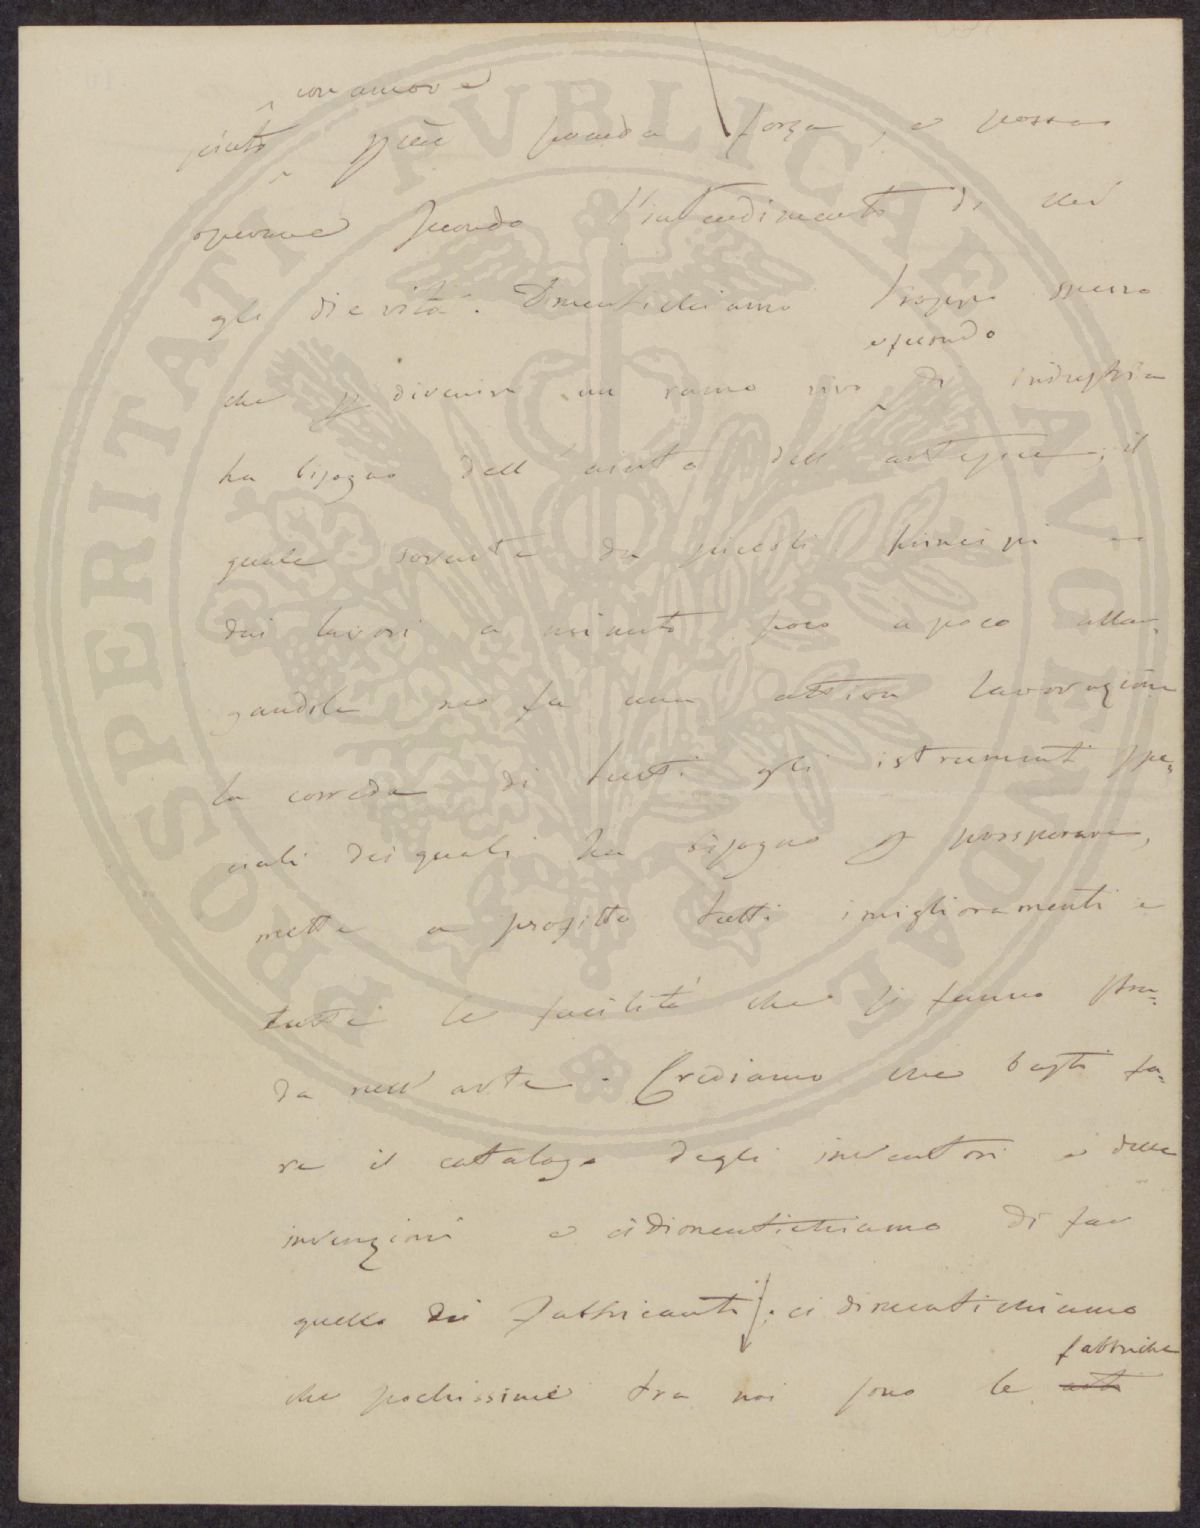 con amore
più prenda forza, e possa
operare secondo l'intendimento di chi
gli die vita. Dimentichiamo troppo spesso
e fecondo
che p divenire un ramo vivo di industria
ha bisogno dell'aiuto dell'artefice, il
quale sovente da piccoli principi e
dai lavori a minuto poco a poco allar-
gandola ne fa una attiva lavorazione
la correda di tutti gli istrumenti spe-
ciali dei quali ha bisogno p prosperare,
mette a profitto tutti i miglioramenti e
tutte le facilità che si fanno stra-
da nell'arte. Crediamo che basti fa-
re il catalogo degli inventori e delle
invenzioni e ci dimentichiamo di far
quello dei fabbricanti; ci dimentichiamo
fabbriche
che pochissime tra noi sono le arti
PROSPERITATI PVBLICAE AVGENDAE